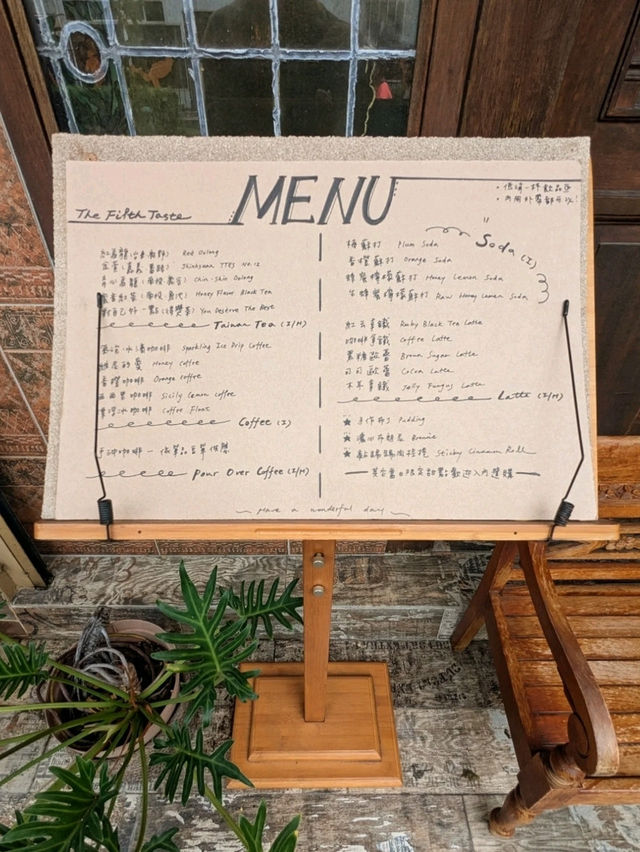 MENU
The Fifth Taste
• 低消一杯飲品
• 內用外帶都可以!
紅烏龍 Red Oolong
Shinksuan TTES No.12
Chin-Shin Oolong
蜜香紅茶 Honey Flavor Black Tea
對自己好一點 You Deserve The Best
Taiwan Tea (I/H)
冰滴咖啡 Sparkling Ice Drip Coffee
Honey Coffee
香橙咖啡 Orange Coffee
西西里咖啡 Sicily Lemon Coffee
漂浮冰咖啡 Coffee Float
Coffee (I)
手沖咖啡 - 依單品豆單供應
Pour Over Coffee (I/H)
Soda (I)
梅蘇打 Plum Soda
香橙蘇打 Orange Soda
蜂蜜檸檬蘇打 Honey Lemon Soda
生蜂蜜檸檬蘇打 Raw Honey Lemon Soda
紅玉拿鐵 Ruby Black Tea Latte
咖啡拿鐵 Coffee Latte
黑糖歐蕾 Brown Sugar Latte
可可歐蕾 Cocoa Latte
木耳拿鐵 Jelly Fungus Latte
Latte (I/H)
★ 手作布丁 Pudding
★ 濃心布朗尼 Brownie
★ 肉桂捲 Sticky Cinnamon Roll
其它當日限定甜點歡迎入內選購
~ Have a wonderful day ~